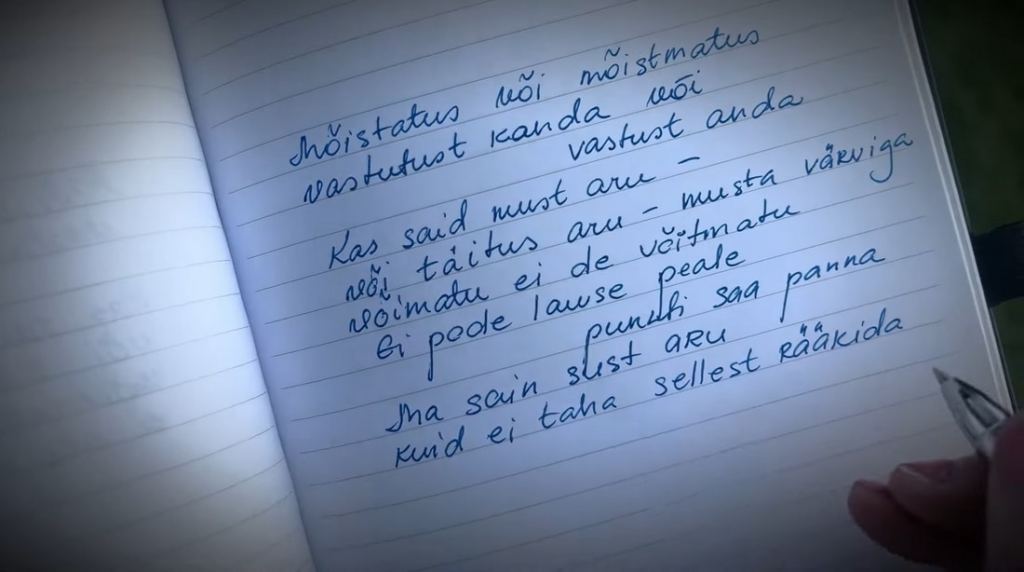 Mõistatus või mõistmatus
vastutust kanda või
vastust anda
Kas said must aru –
või täitus aru – musta värviga
võimatu ei de võitmatu
ei pode lause peale
punkti saa panna
Ma sain sust aru
kuid ei taha sellest rääkida